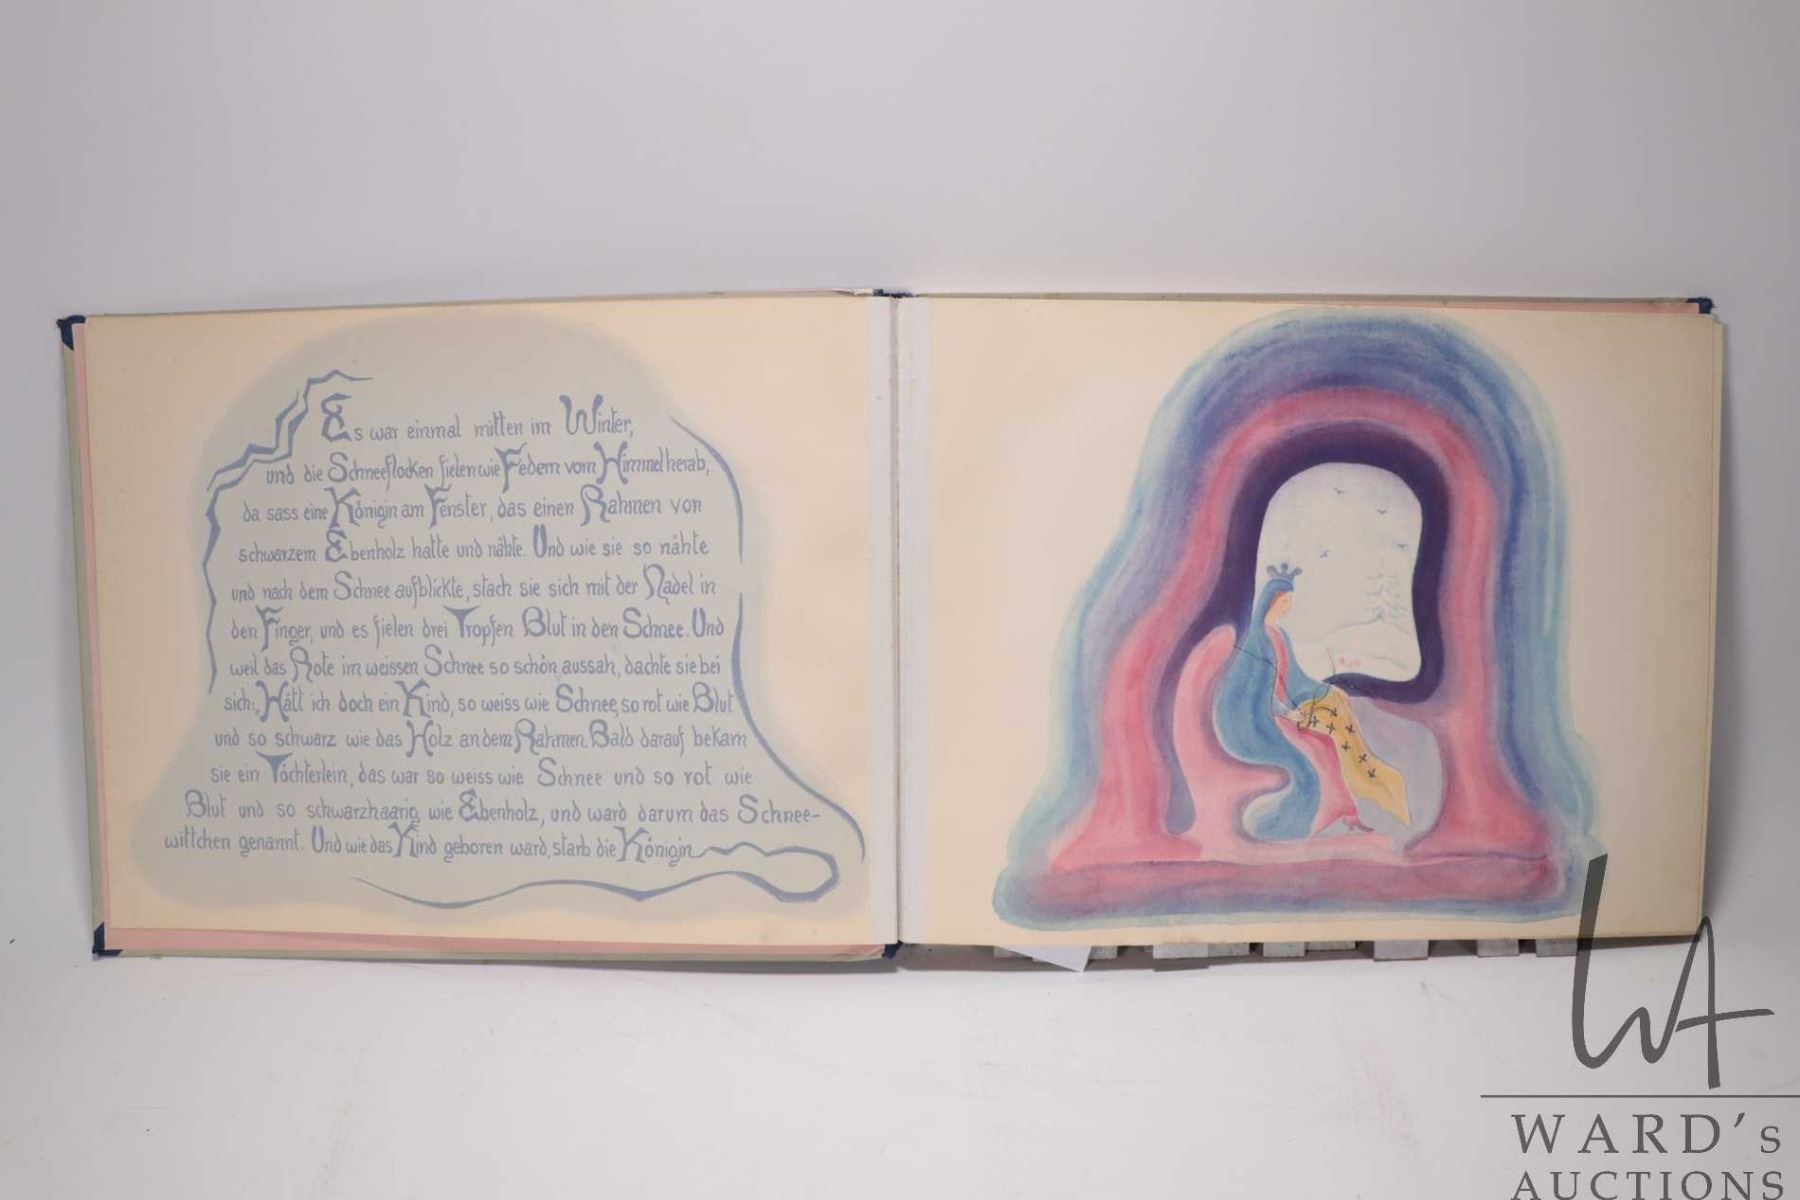 Es war einmal mitten im Winter,
und die Schneeflocken fielen wie Federn vom Himmel herab,
da sass eine Königin am Fenster, das einen Rahmen von
schwarzem Ebenholz hatte und nähte. Und wie sie so nähte
und nach dem Schnee aufblickte, stach sie sich mit der Nadel in
den Finger, und es fielen drei Tropfen Blut in den Schnee. Und
weil das Rote im weissen Schnee so schön aussah, dachte sie bei
sich: „Hätt ich doch ein Kind, so weiss wie Schnee, so rot wie Blut
und so schwarz wie das Holz an dem Rahmen. Bald darauf bekam
sie ein Töchterlein, das war so weiss wie Schnee und so rot wie
Blut und so schwarzhaarig wie Ebenholz, und ward darum das Schnee-
wittchen genannt. Und wie das Kind geboren ward, starb die Königin
WA
WARD's
AUCTIONS